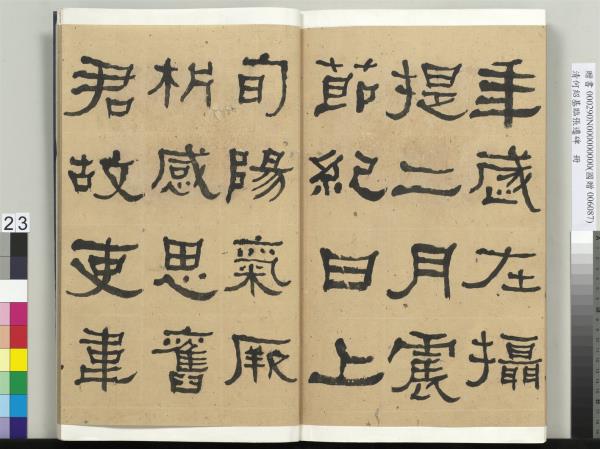 年歲在攝
提二月震
節紀日上
旬陽氣厥
析感思舊
君故吏韋
贈書 000290N000000000(國贈 006087)
清何紹基臨張遷碑 冊
23